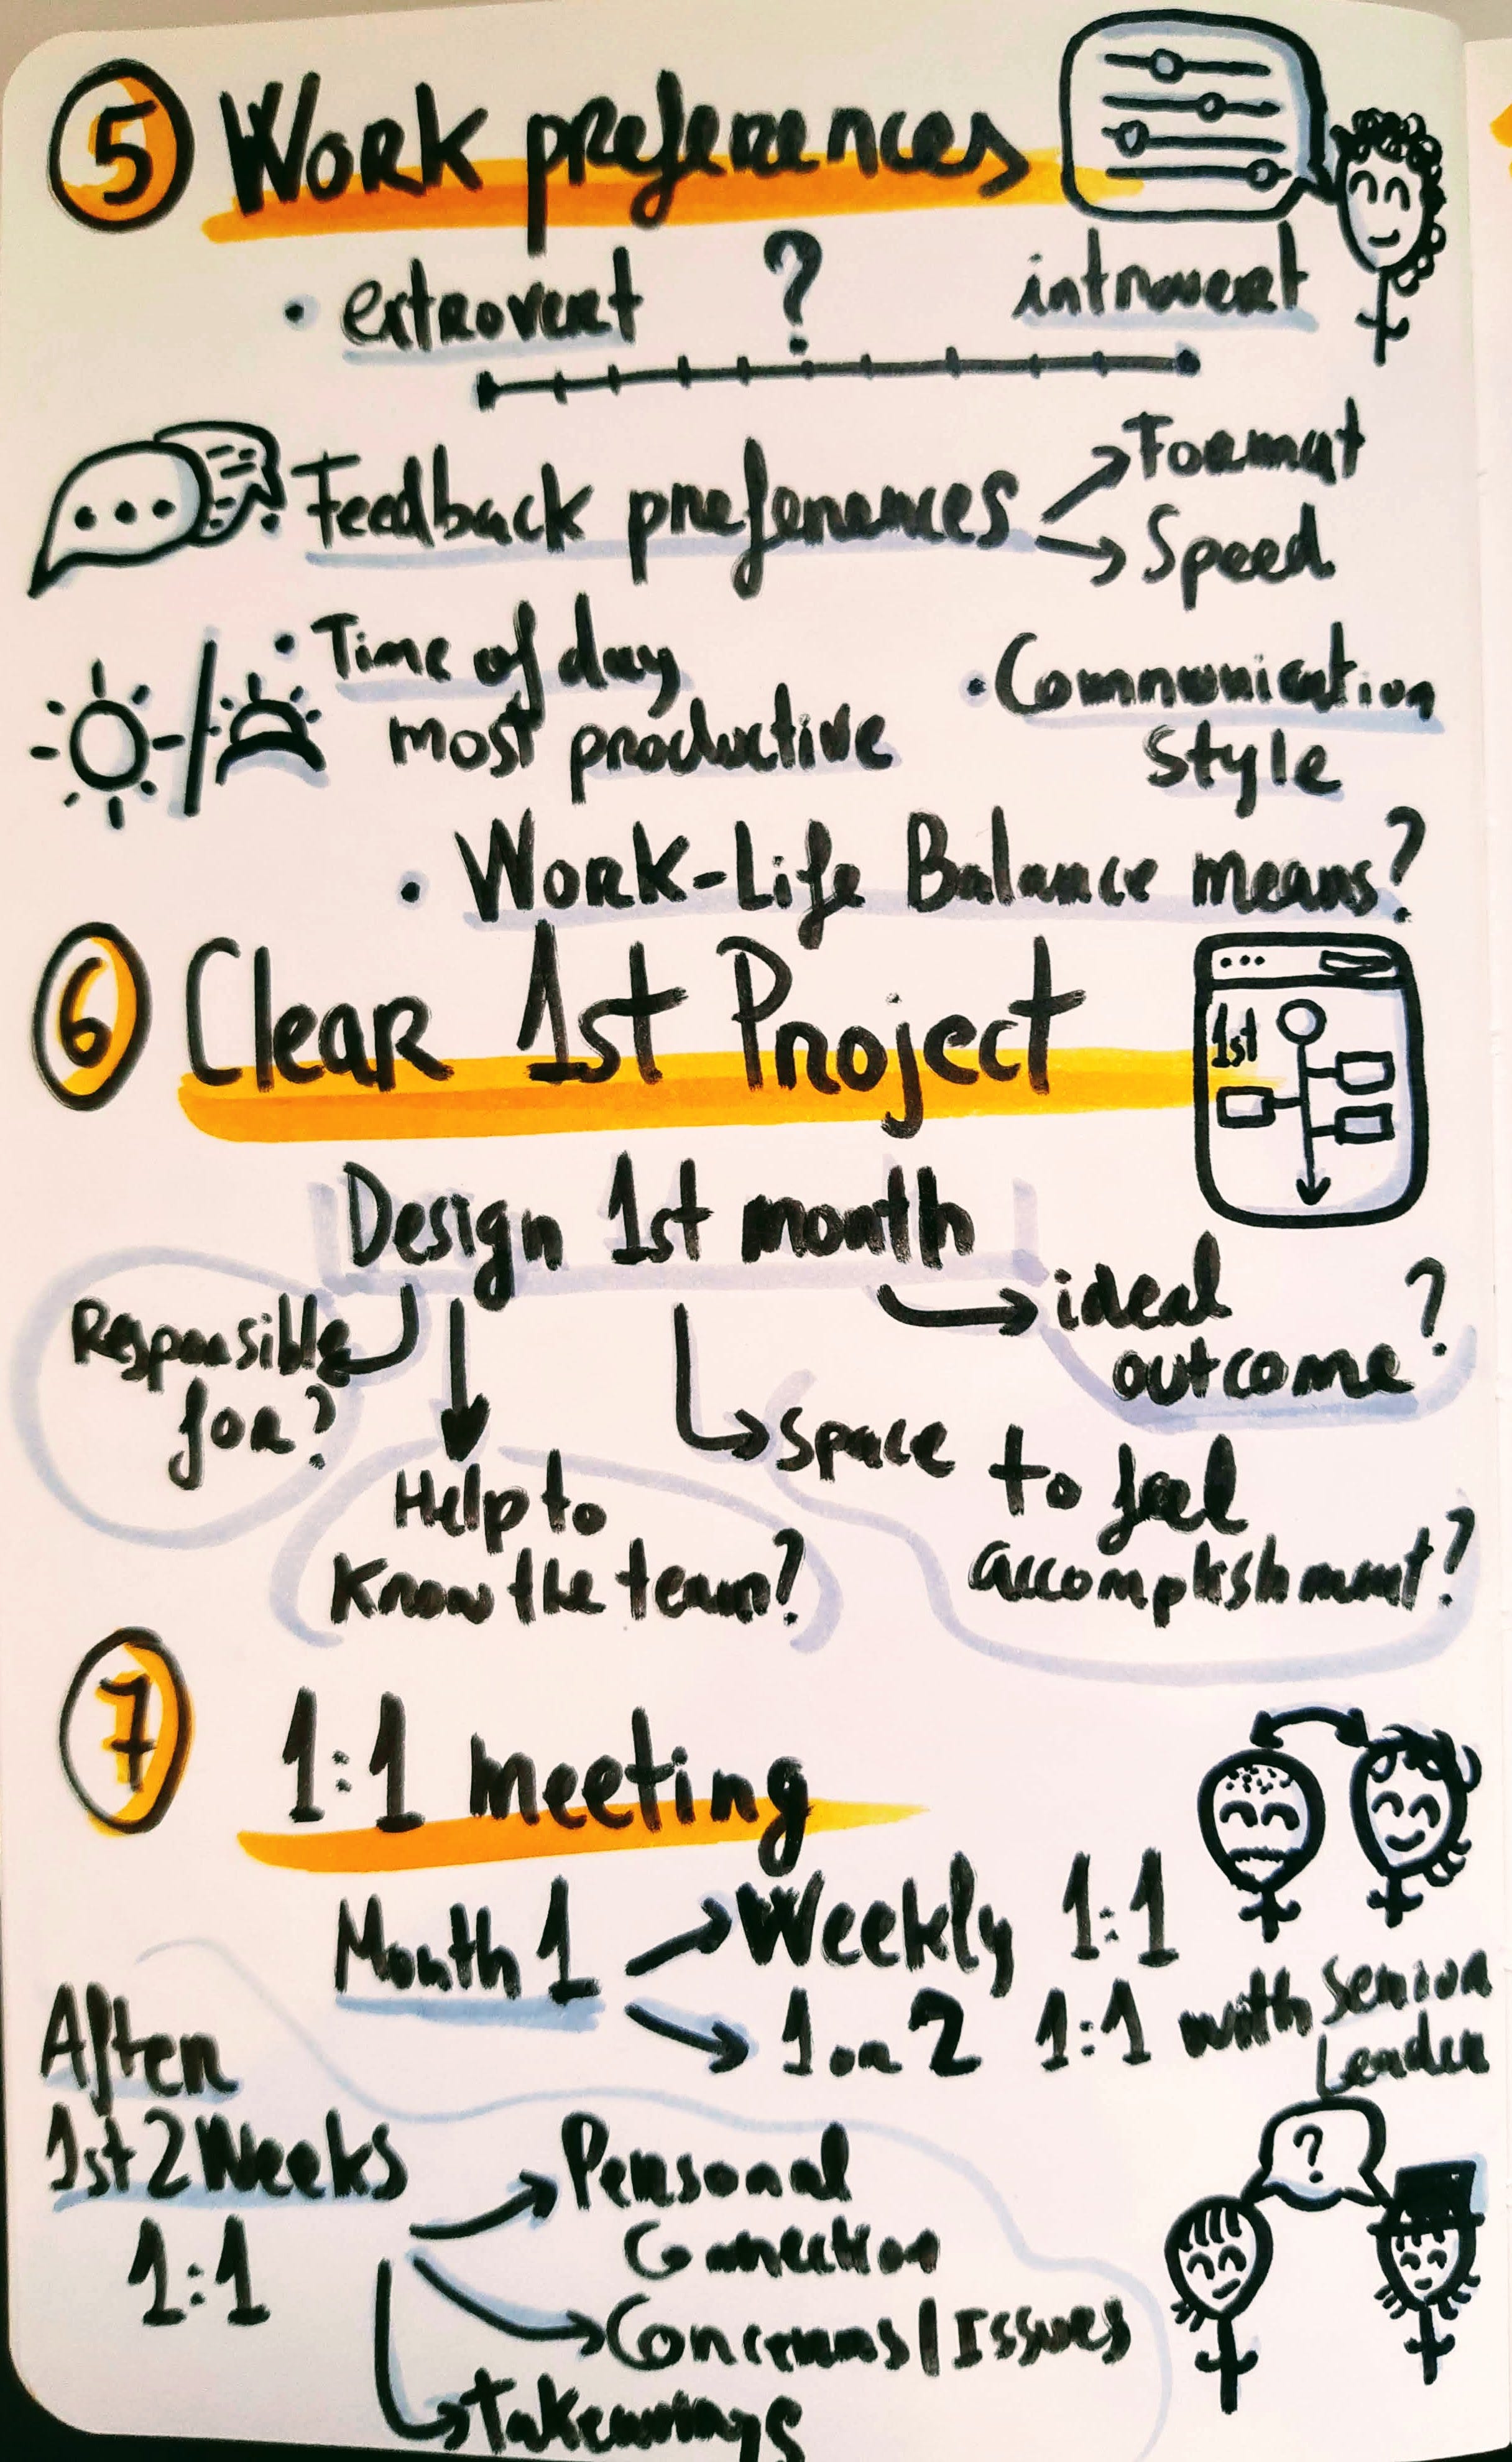 5 Work preferences
• extrovert ? introvert
Feedback preferences
Format
Speed
• Time of day
most productive
• Communication
Style
• Work-Life Balance means?
6 Clear 1st Project
1st
Design 1st month
Responsible
for?
Help to
Know the team?
space to feel
accomplishment?
ideal
outcome?
7 1:1 meeting
Month 1
Weekly 1:1
1 or 2 1:1 with Senior
Leader
After
1st 2 Weeks
1:1
Personal
Connection
Concerns/Issues
Takeaways
?